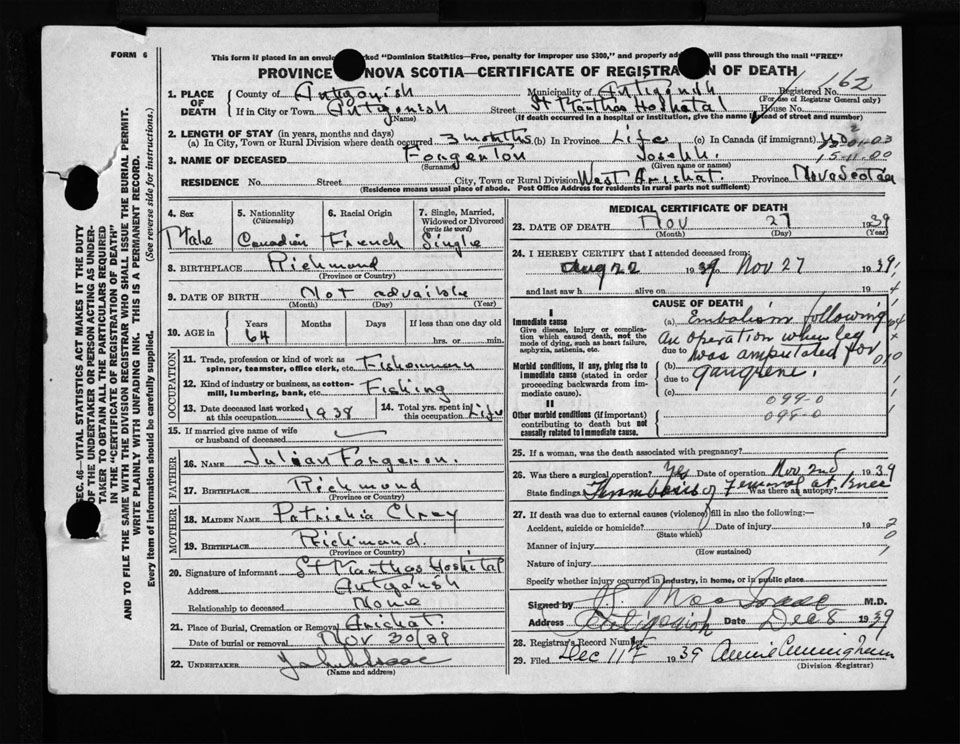 FORM 6
This form if placed in an envelope marked "Dominion Statistics—Free, penalty for improper use $300," and properly addressed will pass through the mail "FREE"
PROVINCE NOVA SCOTIA—CERTIFICATE OF REGISTRATION OF DEATH
Registered No. 162
(For use of Registrar General only)
1. PLACE OF DEATH
County of Antigonish Municipality of Antigonish
If in City or Town Antigonish Street St Marthas Hoshital House No.
(Name) (If death occurred in a hospital or institution, give the name instead of street and number)
2. LENGTH OF STAY (in years, months and days)
(a) In City, Town or Rural Division where death occurred 3 months (b) In Province Life (c) In Canada (if immigrant)
3. NAME OF DECEASED Joseph
(Surname) (Given name or names)
15-11-00
RESIDENCE No. Street City, Town or Rural Division West Arichat Province Nova Scotia
(Residence means usual place of abode. Post Office Address for residents in rural parts not sufficient)
4. Sex Male
5. Nationality (Citizenship) Canadian
6. Racial Origin French
7. Single, Married, Widowed or Divorced (write the word) Single
8. BIRTHPLACE Richmond
(Province or Country)
9. DATE OF BIRTH Not available
(Month) (Day) (Year)
10. AGE in Years Months Days If less than one day old
64 hrs. or min.
OCCUPATION
11. Trade, profession or kind of work as spinner, teamster, office clerk, etc. Fisherman
12. Kind of industry or business, as cotton-mill, lumbering, bank, etc. Fishing
13. Date deceased last worked at this occupation 1938
14. Total yrs. spent in this occupation Life
15. If married give name of wife or husband of deceased
FATHER
16. NAME Julian Forgeron
17. BIRTHPLACE Richmond
(Province or Country)
MOTHER
18. MAIDEN NAME
19. BIRTHPLACE Richmond.
(Province or Country)
20. Signature of informant St Marthas Hoshital
Address Antigonish
Relationship to deceased None
21. Place of Burial, Cremation or Removal Arichat
Date of burial or removal Nov 30/39
22. UNDERTAKER
(Name and address)
MEDICAL CERTIFICATE OF DEATH
23. DATE OF DEATH Nov 27 1939
(Month) (Day) (Year)
24. I HEREBY CERTIFY that I attended deceased from:
Aug 22 1939 to Nov 27 1939
and last saw h alive on 19
CAUSE OF DEATH
I
Immediate cause
Give disease, injury or complication which caused death, not the mode of dying, such as heart failure, asphyxia, asthenia, etc.
Morbid conditions, if any, giving rise to immediate cause (stated in order proceeding backwards from immediate cause).
II
Other morbid conditions (if important) contributing to death but not causally related to immediate cause.
(a) Embolism following
an operation when leg
due to was amputated for
(b) gangrene.
due to
(c)
099-0
099-0
25. If a woman, was the death associated with pregnancy?
26. Was there a surgical operation? Yes Date of operation Nov 2nd 1939
State findings Thrombosis of Femoral at Knee Was there an autopsy?
27. If death was due to external causes (violence) fill in also the following:—
Accident, suicide or homicide? Date of injury 19
(State which)
Manner of injury
(How sustained)
Nature of injury
Specify whether injury occurred in industry, in home, or in public place
Signed by M.D.
Address Antigonish Date Dec 8 1939
28. Registrar's Record Number
29. Filed Dec 11th 1939 Annie Cunningham
(Division Registrar)
SEC. 46—VITAL STATISTICS ACT MAKES IT THE DUTY
OF THE UNDERTAKER OR PERSON ACTING AS UNDERTAKER TO OBTAIN ALL THE PARTICULARS REQUIRED
IN THE "CERTIFICATE OF REGISTRATION OF DEATH"
AND TO FILE THE SAME WITH THE DIVISION REGISTRAR WHO SHALL ISSUE THE BURIAL PERMIT.
WRITE PLAINLY WITH UNFADING INK. THIS IS A PERMANENT RECORD.
Every item of information should be carefully supplied. (See reverse side for instructions.)